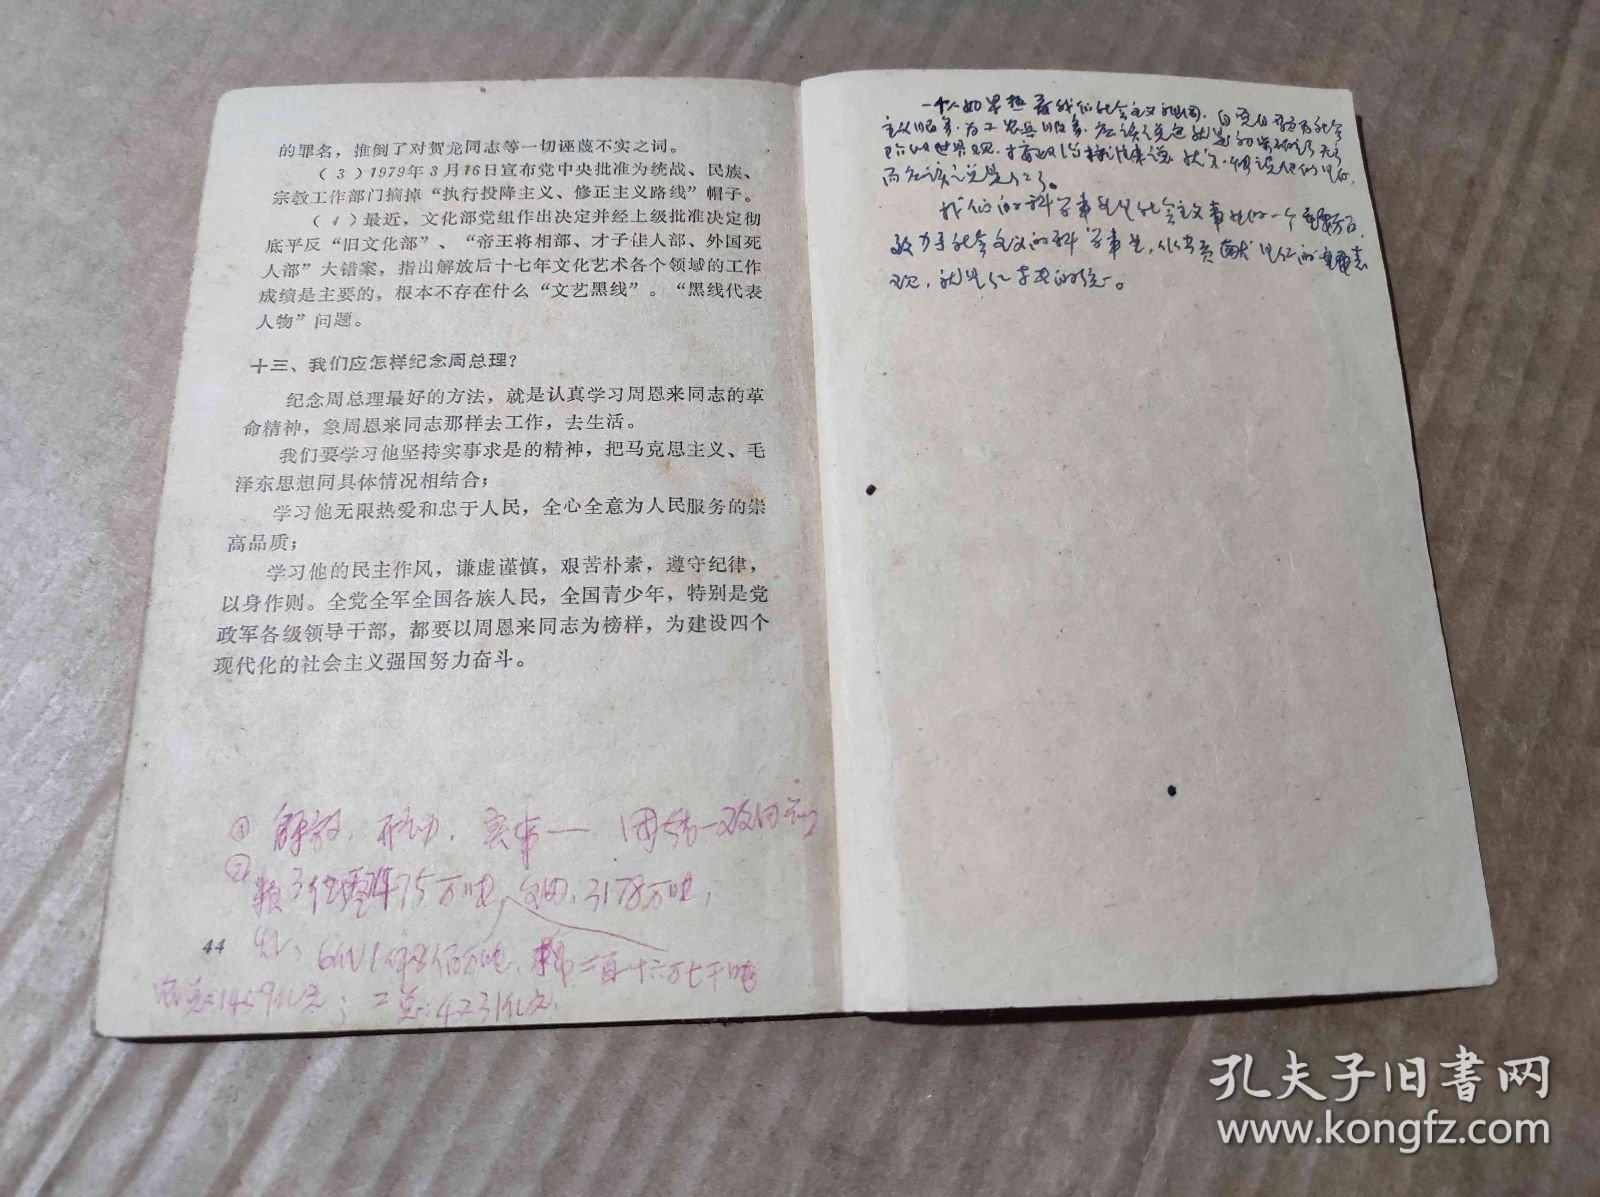 的罪名，推倒了对贺龙同志等一切诬蔑不实之词。
（3）1979年3月16日宣布党中央批准为统战、民族、
宗教工作部门摘掉“执行投降主义、修正主义路线”帽子。
（4）最近，文化部党组作出决定并经上级批准决定彻
底平反“旧文化部”、“帝王将相部、才子佳人部、外国死
人部”大错案，指出解放后十七年文化艺术各个领域的工作
成绩是主要的，根本不存在什么“文艺黑线”。“黑线代表
人物”问题。
十三、我们应怎样纪念周总理？
纪念周总理最好的方法，就是认真学习周恩来同志的革
命精神，象周恩来同志那样去工作，去生活。
我们要学习他坚持实事求是的精神，把马克思主义、毛
泽东思想同具体情况相结合；
学习他无限热爱和忠于人民，全心全意为人民服务的崇
高品质；
学习他的民主作风，谦虚谨慎，艰苦朴素，遵守纪律，
以身作则。全党全军全国各族人民，全国青少年，特别是党
政军各级领导干部，都要以周恩来同志为榜样，为建设四个
现代化的社会主义强国努力奋斗。
① 解放，开动，实事— 团结一致向前
②
75万吨 3178万吨，
二百十六万七千吨
农总：1459亿元；工总：4231亿元。
44
一个人如果热爱我们社会主义祖国，自觉自愿为社会
主义服务，为工农兵服务，应该说这就是初步确立了无
产阶级世界观，
而应该说是红了。
我们的科学事业是社会主义事业的一个重要方面，
致力于社会主义的科学事业，作出贡献
现，就是红与专的统一。
孔夫子旧书网
www.kongfz.com